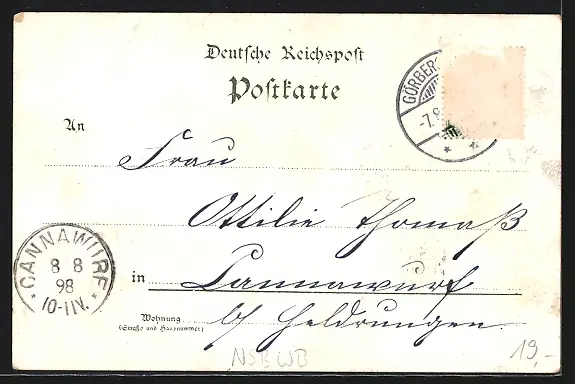 Deutsche Reichspost
Postkarte
GÖRBERS
-7.8
An
Frau
Ottilie Thomaß
in Cannawurf
Wohnung
(Straße und Hausnummer)
b/ Heldrungen.
CANNAWURF
8 8
98
10-11V.
NSBWB
19,-